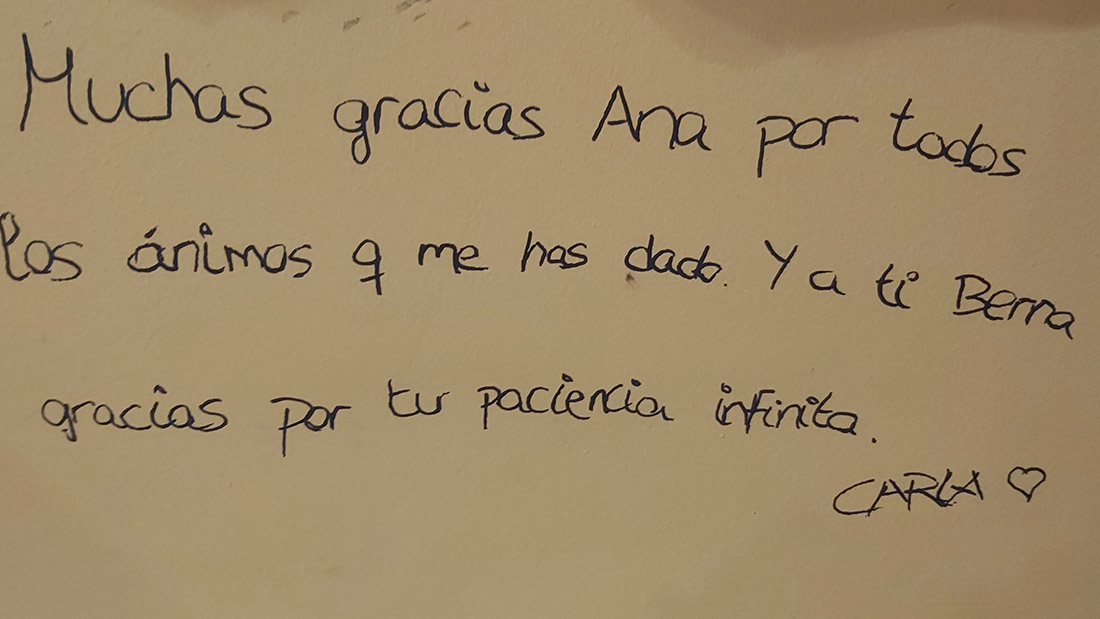 Muchas gracias Ana por todos
los ánimos q me has dado. Y a ti Berna
gracias por tu paciencia infinita.
CARLA ♡